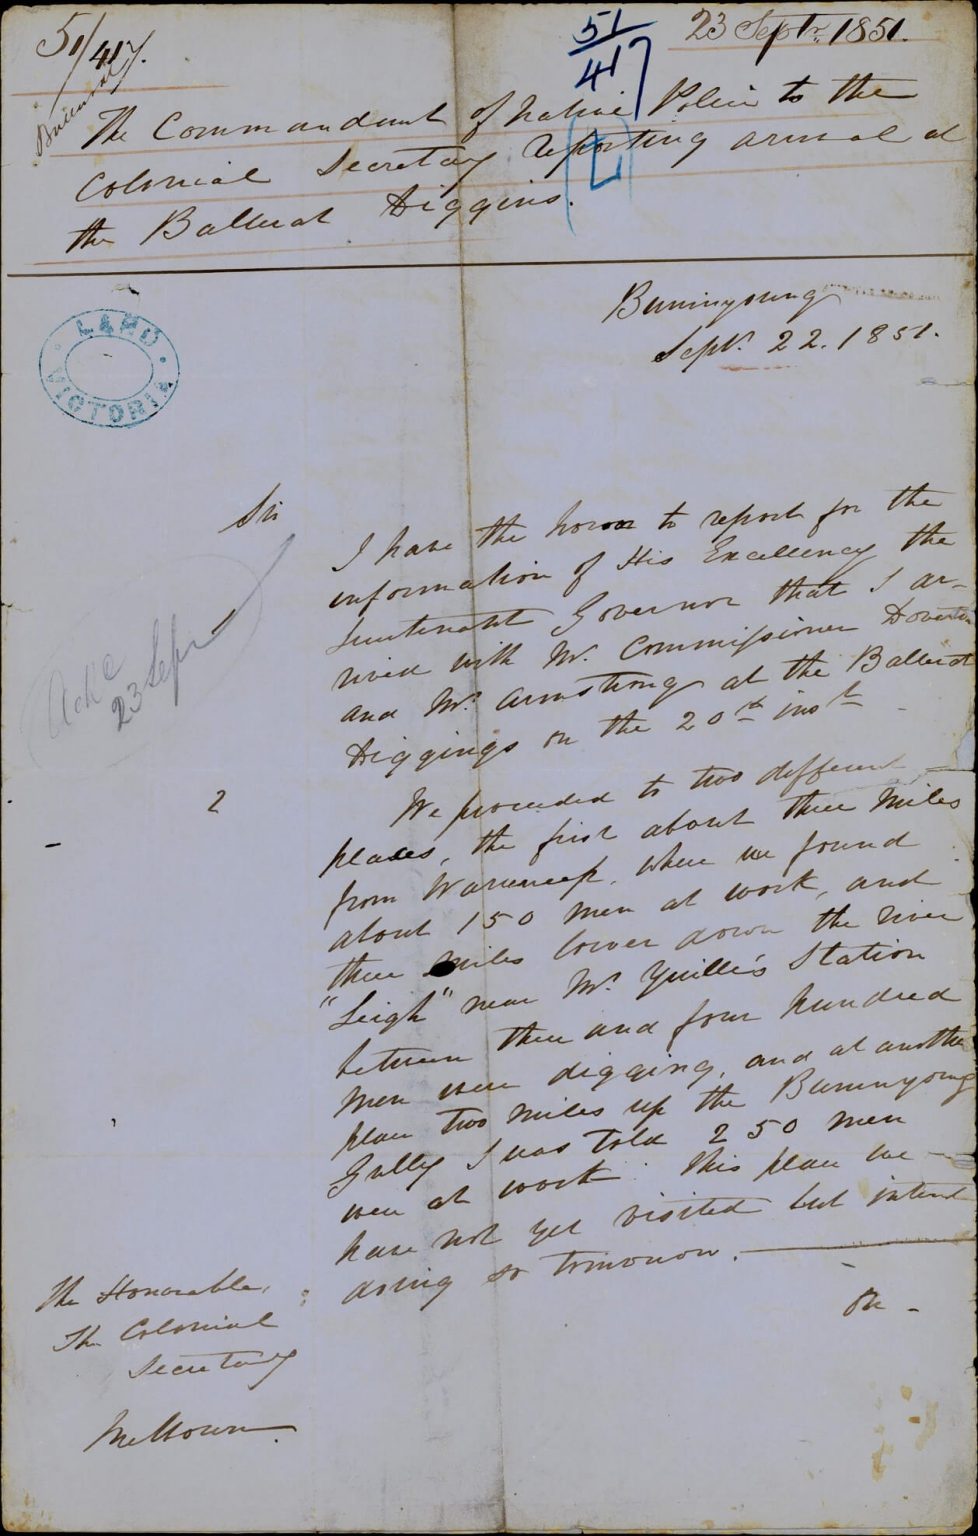 51/417.
51/417
23 Septr. 1851.
The Commandant of Native Police to the
Colonial Secretary reporting arrival at
the Ballarat Diggins.
Buninyoung
Septr. 22. 1851.
LAND
VICTORIA
Sir
I have the honor to report for the
information of His Excellency the
Lieutenant Governor that I ar-
rived with Mr. Commissioner Doveton
and Mr. Armstrong at the Ballarat
Diggings on the 20th inst
Ackd
23 Sepr
2
We proceeded to two different
places, the first about three miles
from Warreneep, where we found
about 150 men at work, and
three miles lower down the river
"Leigh" near Mr. Yuille's Station
between three and four hundred
men were digging, and at another
place two miles up the Buninyong
Gully I was told 250 men
were at work. This place we
have not yet visited but intend
doing so tomorrow.
The Honorable,
The Colonial
Secretary
Melbourne.